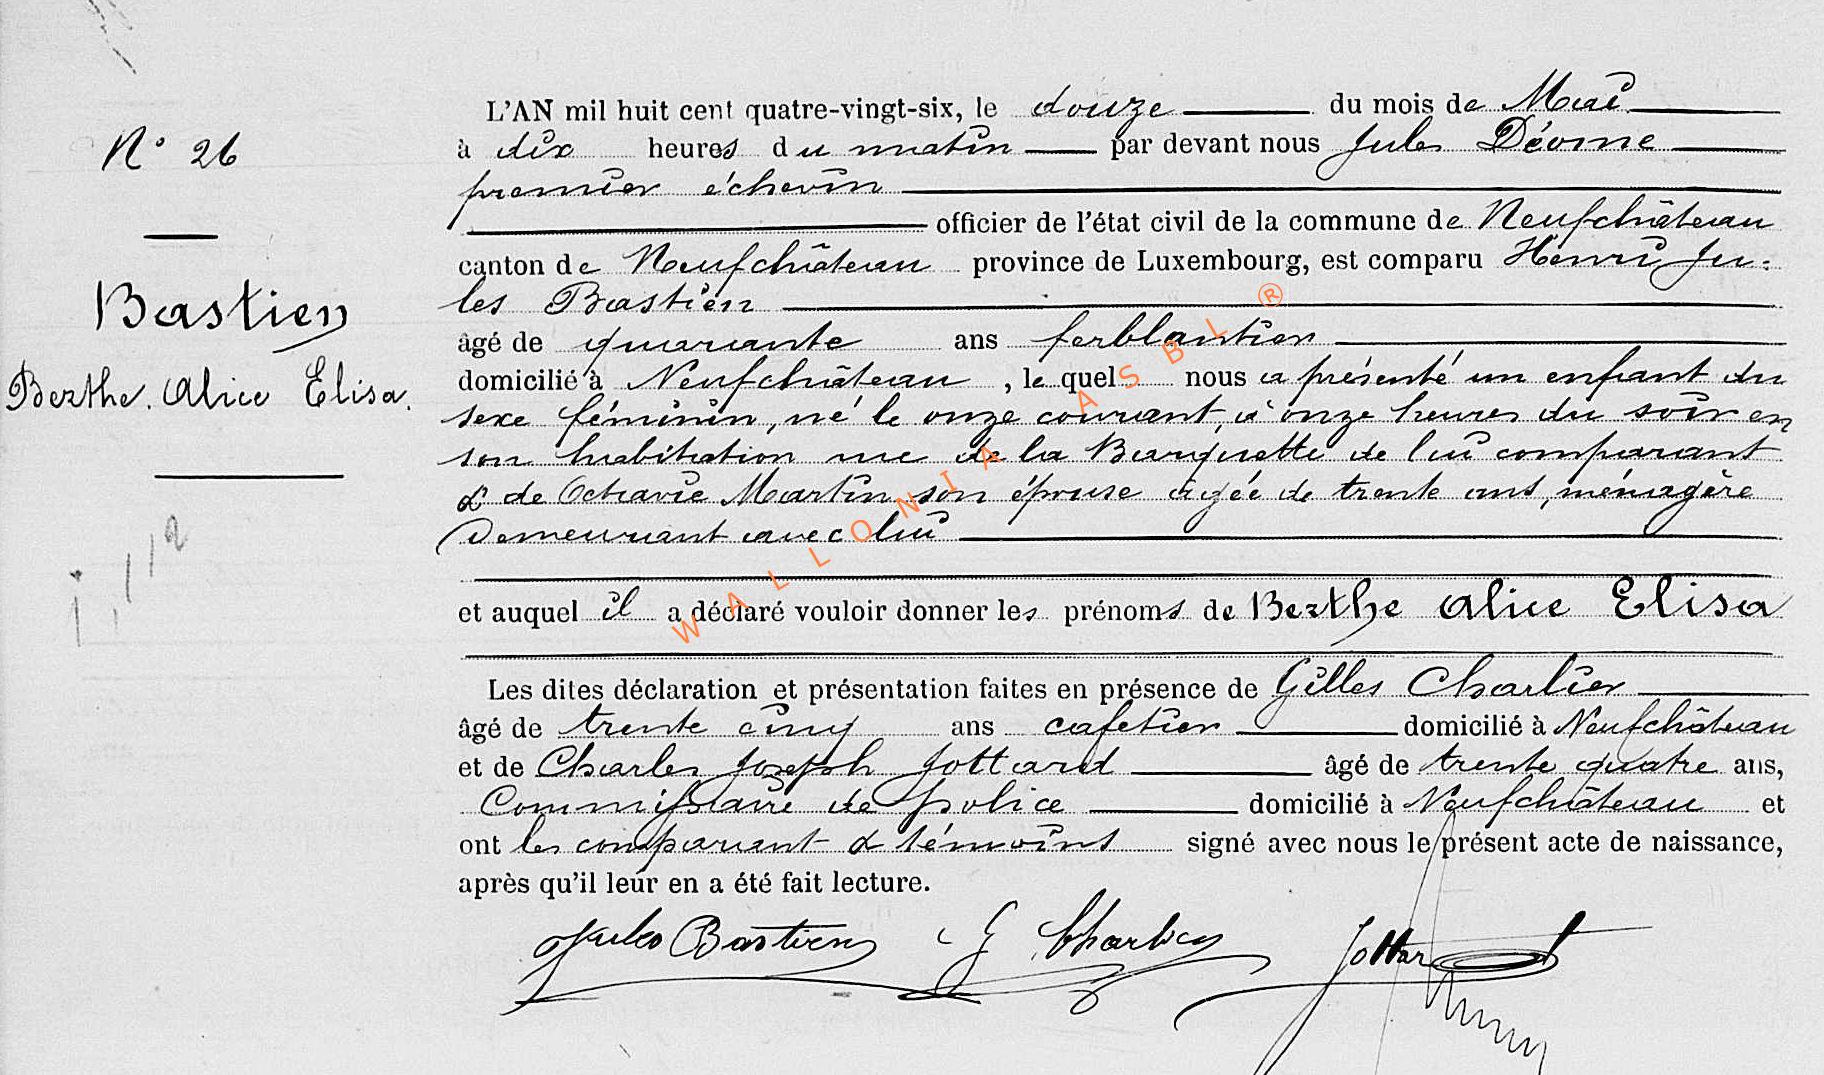 N° 26
Bastien
Berthe. Alice Elisa.
L'AN mil huit cent quatre-vingt-six, le douze du mois de Mai
à dix heures du matin par devant nous Jules Déome
premier échevin
officier de l'état civil de la commune de Neufchâteau
canton de Neufchâteau province de Luxembourg, est comparu Henri Ju:
les Bastien
âgé de quarante ans ferblantier
domicilié à Neufchâteau, le quel nous a présenté un enfant du
sexe féminin, né le onze courant, à onze heures du soir en
son habitation rue de la Banquette de lui comparant
& de Octavie Martin son épouse agée de trente ans, ménagère
Demeurant avec lui
et auquel il a déclaré vouloir donner les prénoms de Berthe Alice Elisa
Les dites déclaration et présentation faites en présence de Gilles Charlier
âgé de trente cinq ans cafetier domicilié à Neufchâteau
et de Charles Joseph Jottard âgé de trente quatre ans,
Commissaire de police domicilié à Neufchâteau et
ont les comparant & témoins signé avec nous le présent acte de naissance,
après qu'il leur en a été fait lecture.
Jules Bastien G Charlier Jottard
WALLONIA ASBL ®